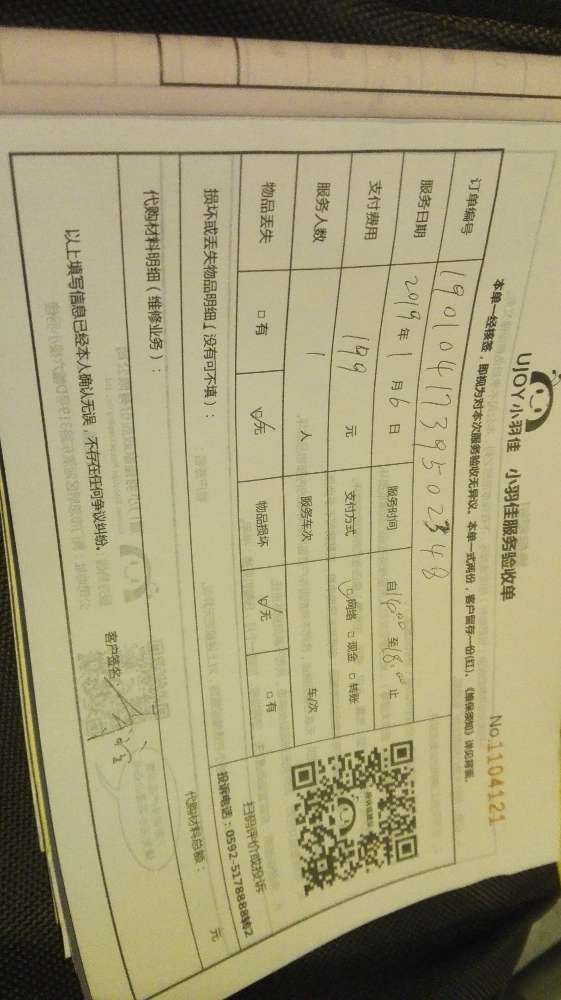 UJOY小羽佳 小羽佳服务验收单
No.1104121
本单一经核签，即视为对本次服务验收无异议。本单一式两份，客户留存一份(红)。《维保须知》详见背面。
订单编号 1901041739502348
服务日期 2019年1月6日 服务时间 自16:00至18:00止
支付费用 199元 支付方式 ☑网络 □现金 □转账
服务人数 1人 服务车次 车/次
物品丢失 □有 ☑无 物品损坏 ☑无 □有
扫码评价或投诉
投诉电话：0592-5178888转2
损坏或丢失物品明细（没有可不填）：
代购材料明细（维修业务）：
代购材料总额： 元
以上填写信息已经本人确认无误，不存在任何争议纠纷。
客户签名：